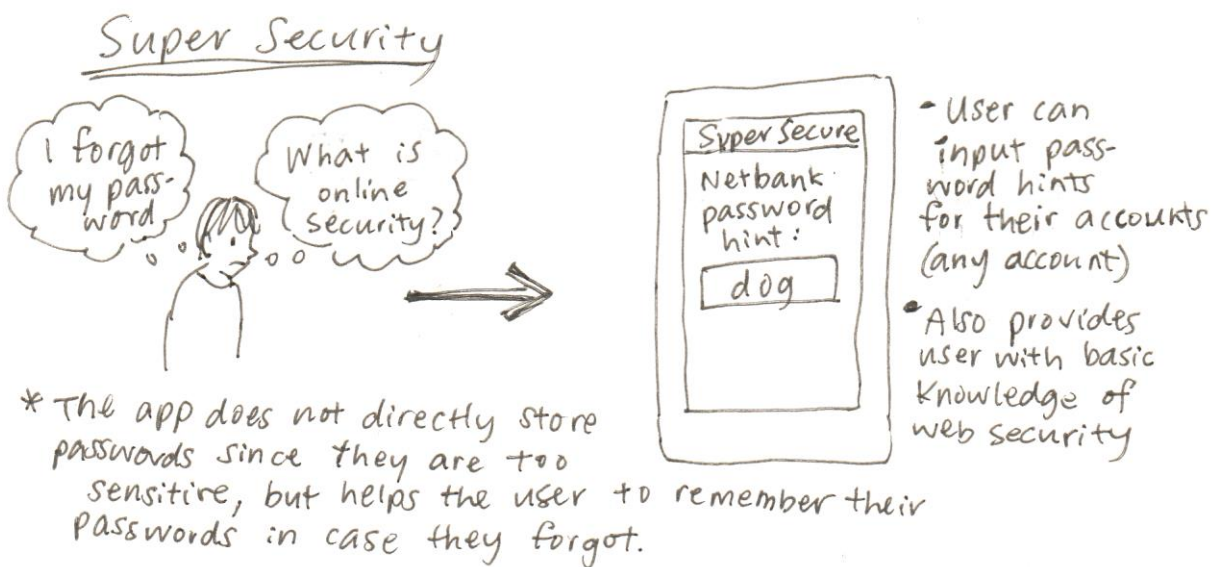 Super Security
I forgot
my pass-
word
What is
online
security?
Super Secure
Netbank
password
hint:
dog
- User can
input pass-
word hints
for their accounts
(any account)
• Also provides
user with basic
knowledge of
web security
* The app does not directly store
passwords since they are too
sensitive, but helps the user to remember their
passwords in case they forgot.